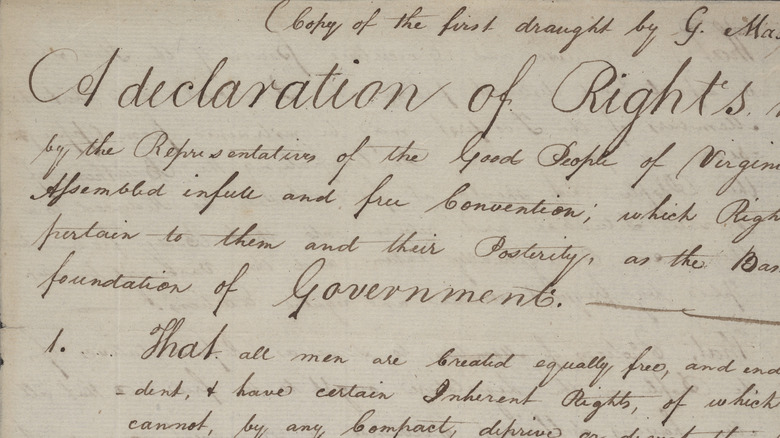 Copy of the first draught by G. Mas
A declaration of Rights,
by the Representatives of the Good People of Virgini
Assembled in full and free Convention; which Righ
pertain to them and their Posterity, as the Bas
foundation of Government.
1. That all men are Created equally free, and end
=dent, & have certain Inherent Rights, of which
cannot, by any Compact, deprive or divest th